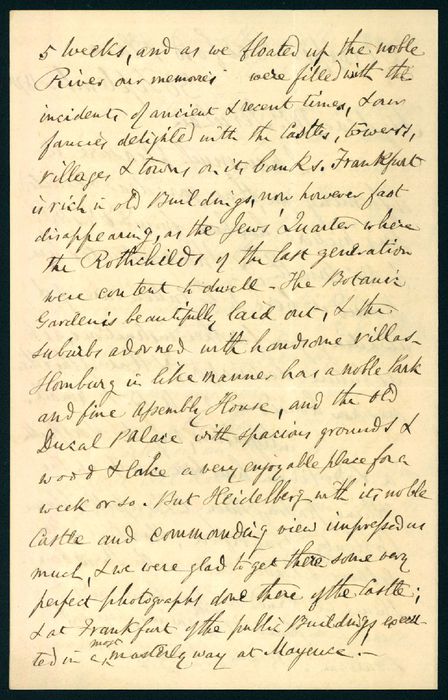 5 weeks, and as we floated up the noble
River our memories were filled with the
incidents of ancient & recent times, & our
fancies delighted with the Castles, towers,
villages & towns on its banks. Frankfurt
is rich in old Buildings, now however fast
disappearing, as the Jews' Quarter where
the Rothchilds of the last generation
were content to dwell - The Botanic
Garden is beautifully laid out, & the
suburbs adorned with handsome villas -
Homburg in like manner has a noble Park
and fine Assembly House, and the old
Ducal Palace with spacious grounds &
wood & lake a very enjoyable place for a
week or so. But Heidelberg with its noble
Castle and commanding view impressed us
much, & we were glad to get there some very
perfect photographs done there of the Castle;
& at Frankfurt of the public Buildings, execu-
ted in a most masterly way at Mayence. -